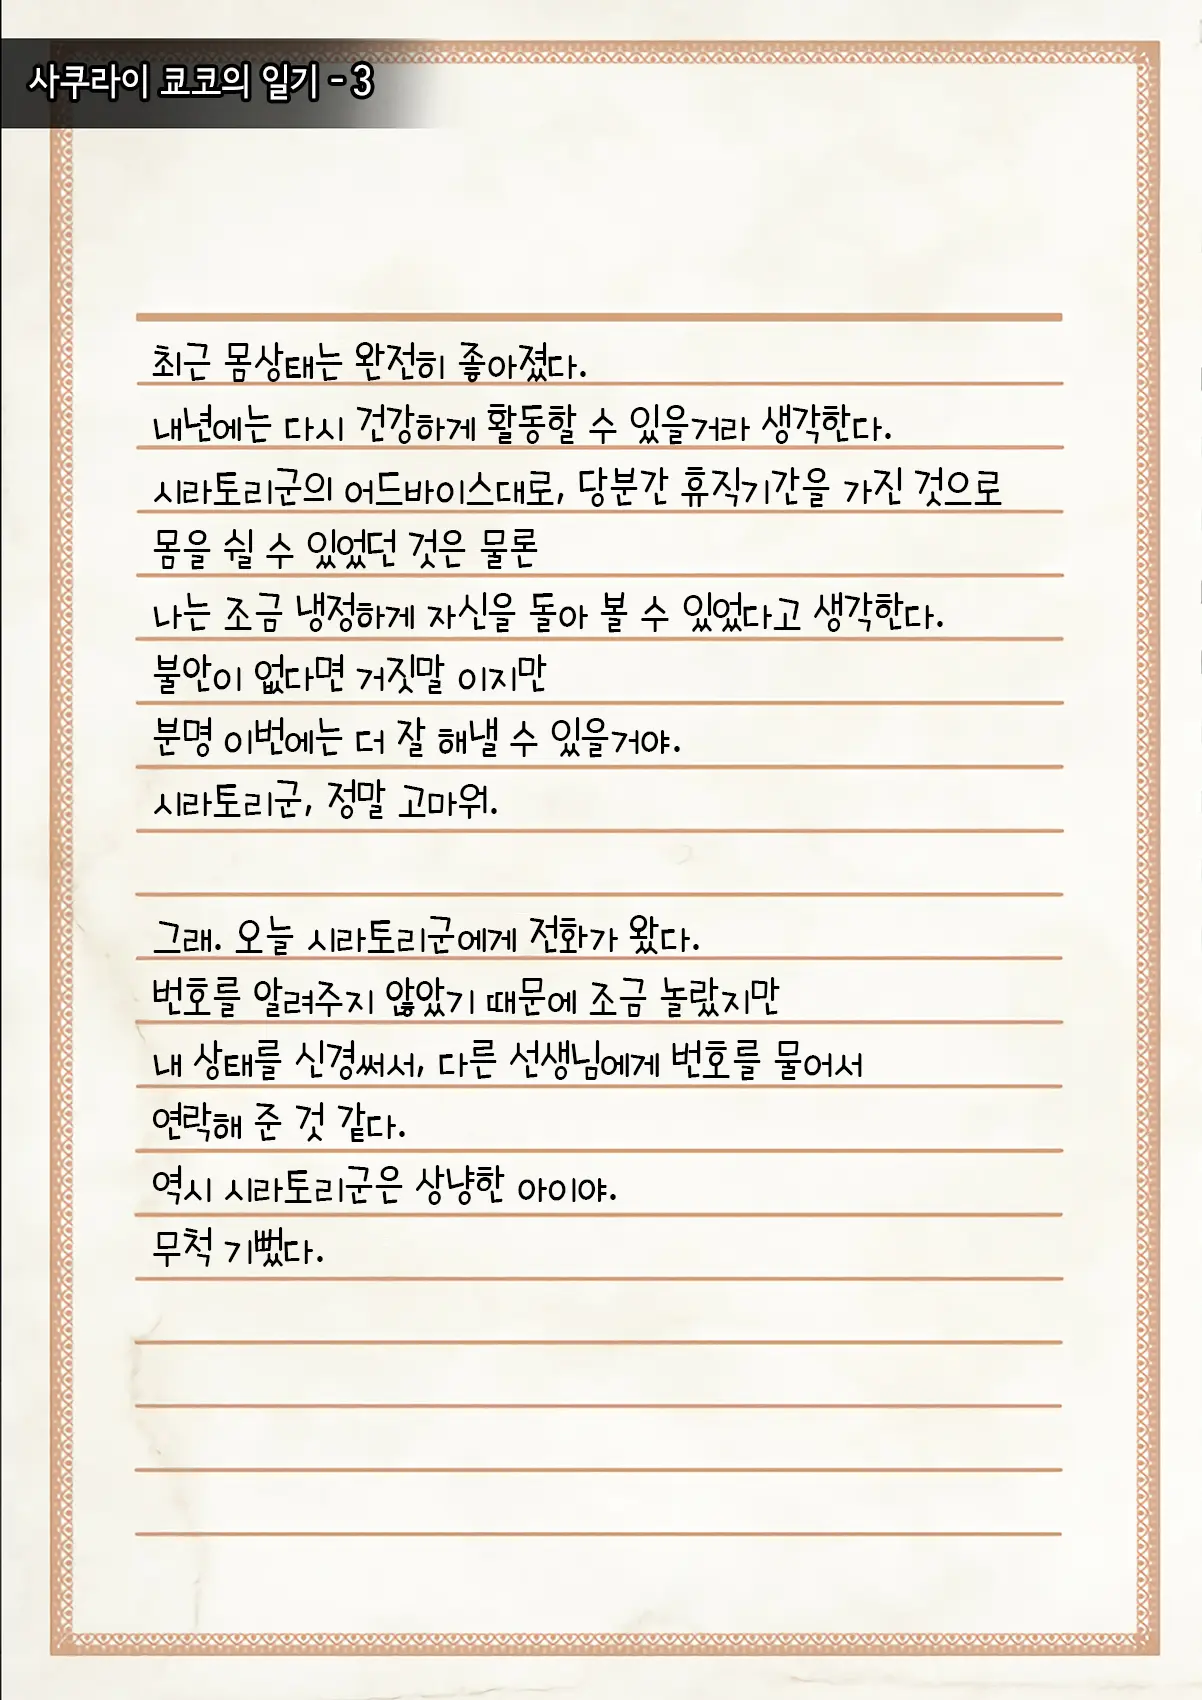 사쿠라이 쿄코의 일기 - 3
최근 몸상태는 완전히 좋아졌다.
내년에는 다시 건강하게 활동할 수 있을거라 생각한다.
시라토리군의 어드바이스대로, 당분간 휴직기간을 가진 것으로
몸을 쉴 수 있었던 것은 물론
나는 조금 냉정하게 자신을 돌아 볼 수 있었다고 생각한다.
불안이 없다면 거짓말 이지만
분명 이번에는 더 잘 해낼 수 있을거야.
시라토리군, 정말 고마워.
그래. 오늘 시라토리군에게 전화가 왔다.
번호를 알려주지 않았기 때문에 조금 놀랐지만
내 상태를 신경써서, 다른 선생님에게 번호를 물어서
연락해 준 것 같다.
역시 시라토리군은 상냥한 아이야.
무척 기뻤다.